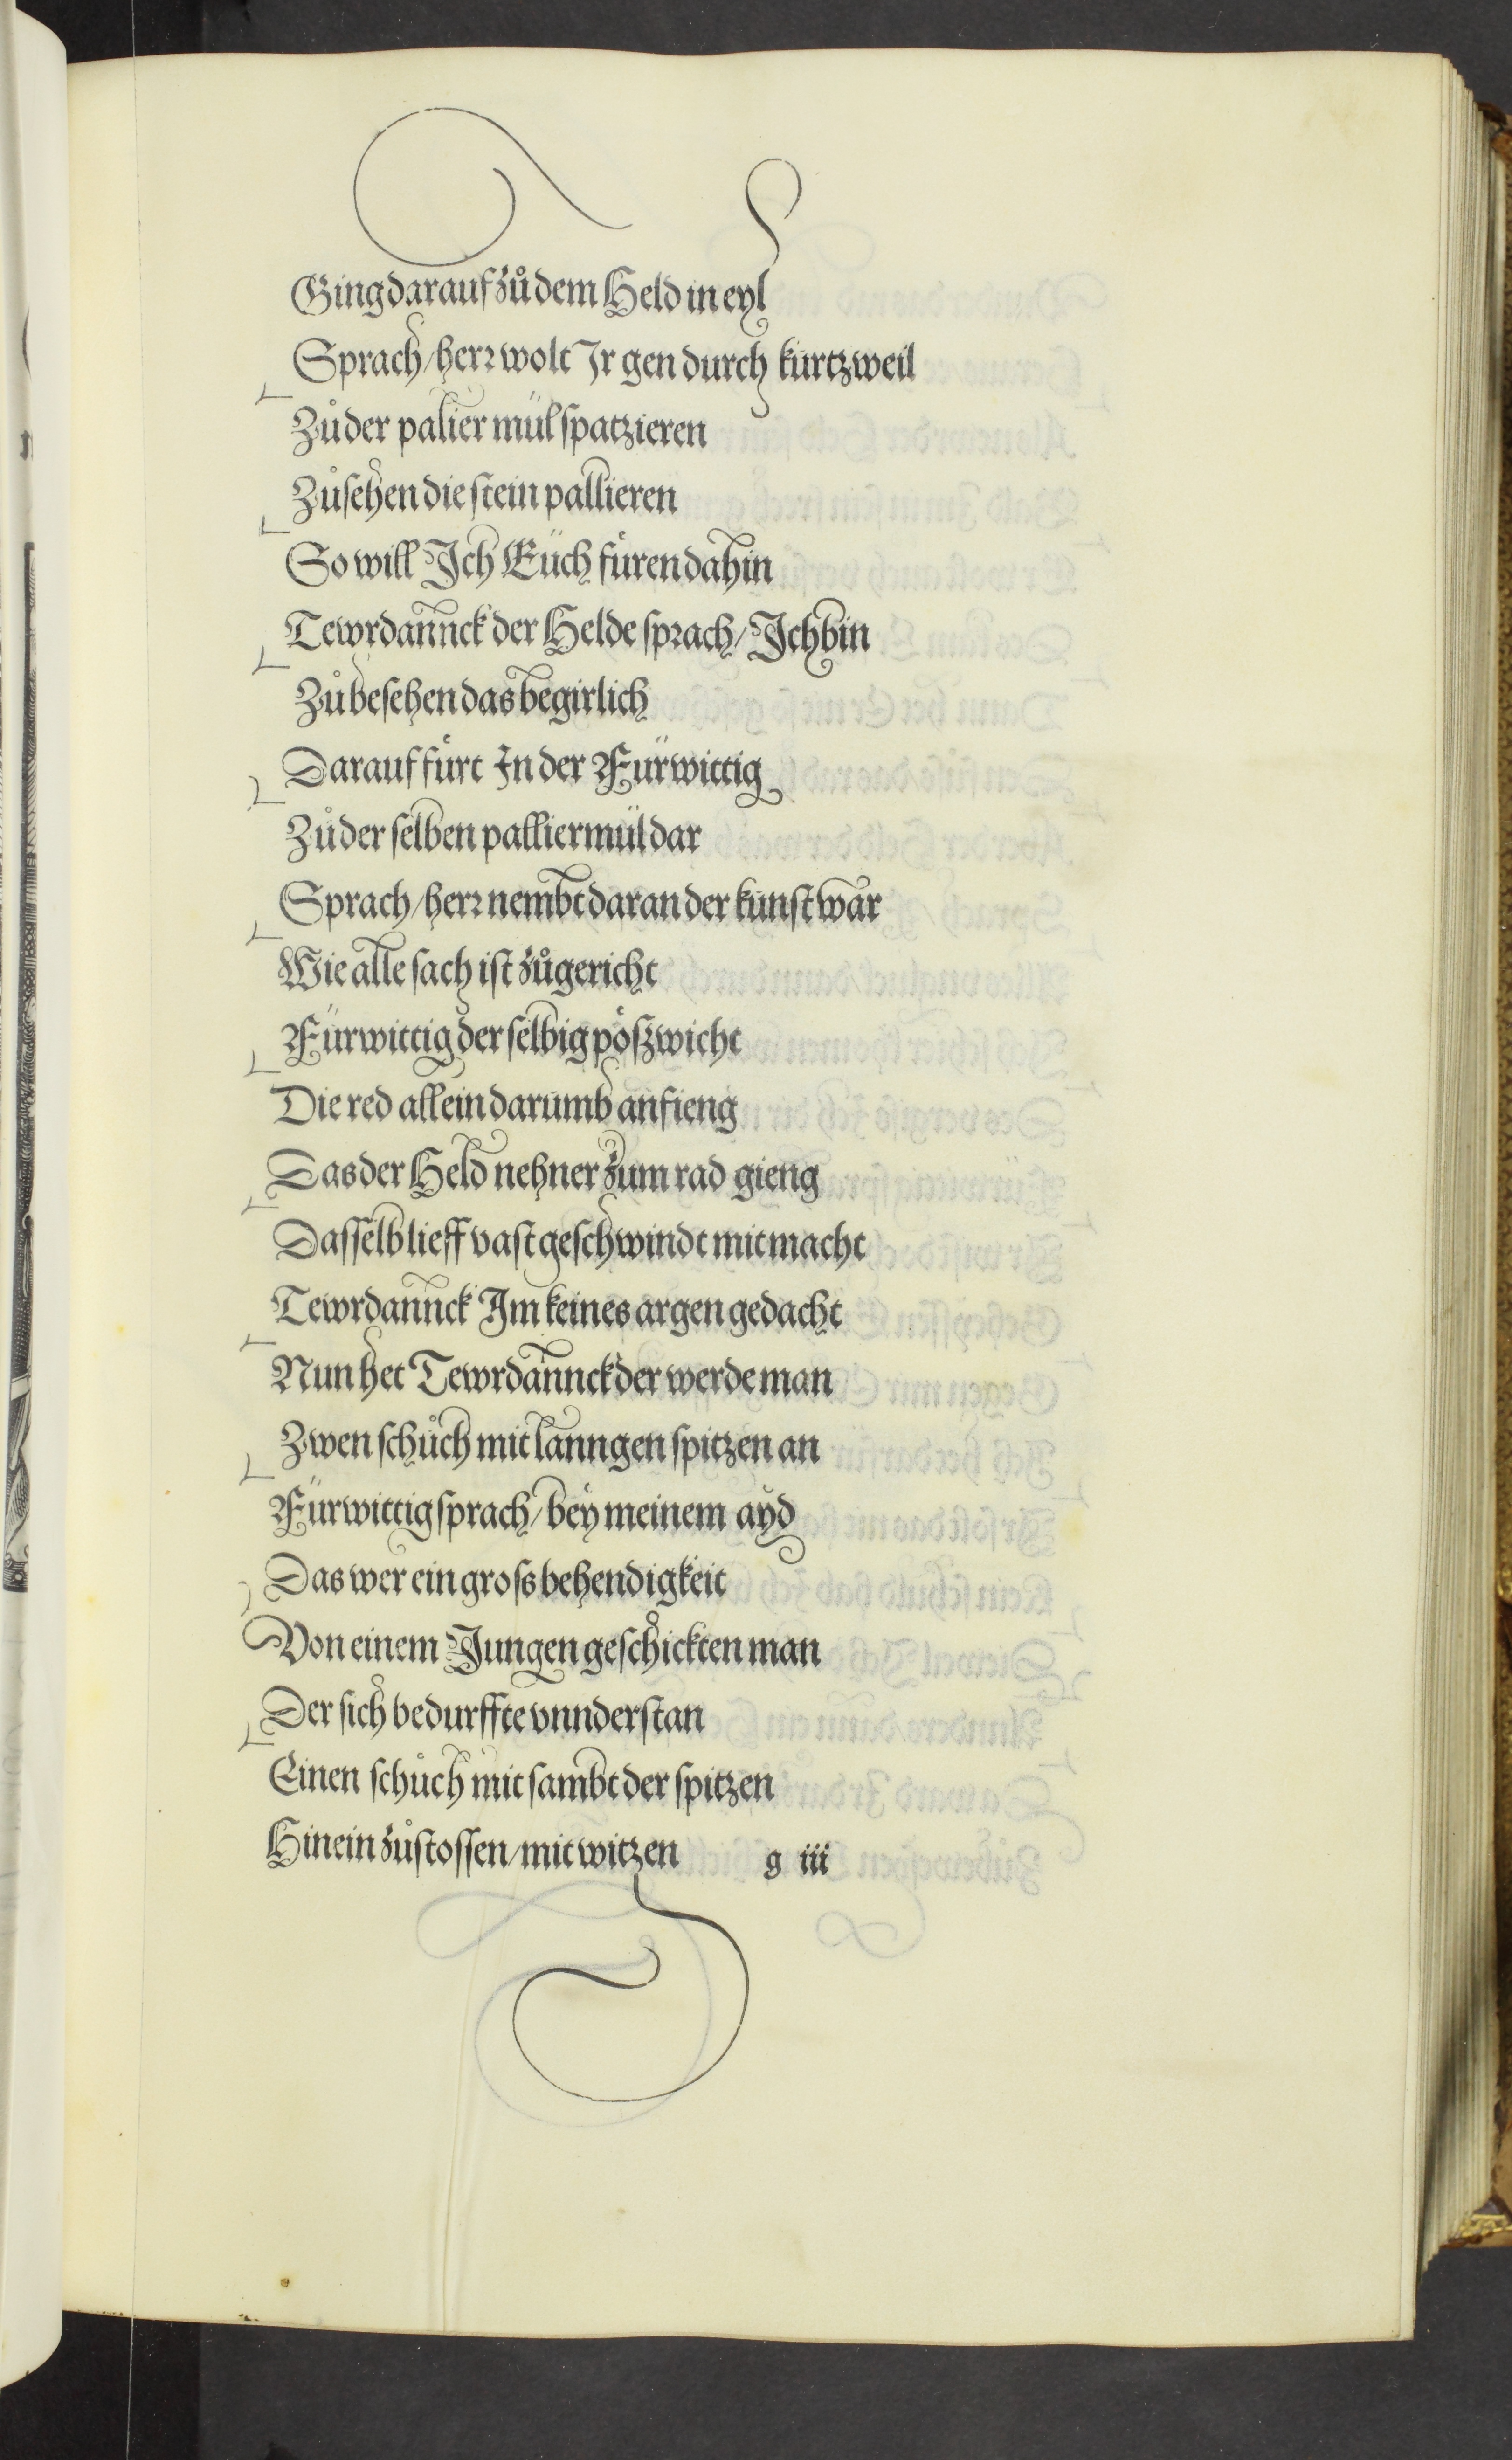 Ging darauf zů dem Held in eyl
Sprach/herr wolt Jr gen durch kurtzweil
Zů der palier mül spatzieren
Zů sehen die stein pallieren
So will Jch Eüch füren dahin
Tewrdannck der Helde sprach/Jch bin
Zů besehen das begirlich
Darauf fürt Jn der Fürwittig
Zů der selben palliermül dar
Sprach/herr nembt daran der kunst war
Wie alle sach ist zůgericht
Fürwittig der selbig pöszwicht
Die red allein darumb anfieng
Das der Held nehner zum rad gieng
Dasselb lieff vast geschwindt mit macht
Tewrdannck Jm keines argen gedacht
Nun het Tewrdannck der werde man
Zwen schůch mit lanngen spitzen an
Fürwittig sprach/bey meinem ayd
Das wer ein gross behendigkeit
Von einem Jungen geschickten man
Der sich bedurffte vnnderstan
Einen schůch mit sambt der spitzen
Hinein zůstossen/mit witzen g iii